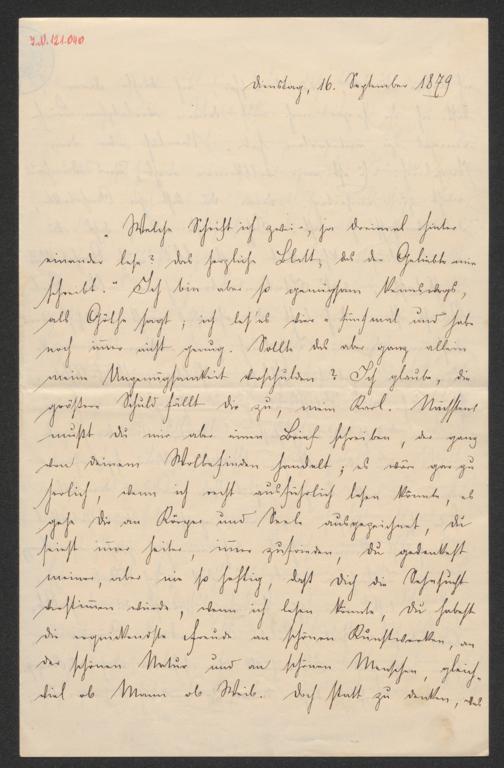 J.N. 121.040
Dienstag, 16. September 1879
„Welche Schrift ich zwei-, ja dreimal hinter
einander lese? Das herzliche Blatt, das die Geliebte mir
schreibt." Ich bin aber so genügsam keineswegs,
als Göthe sagt; ich les' es vier- fünfmal und habe
noch immer nicht genug. Sollte das aber ganz allein
meine Ungenügsamkeit verschulden? Ich glaube, die
größere Schuld fällt dir zu, mein Karl. Nächstens
mußt du mir aber einen Brief schreiben, der ganz
von deinem Wolbefinden handelt; es wär gar zu
herrlich, wenn ich recht ausführlich lesen könnte, es
gehe dir an Körper und Seele ausgezeichnet, du
seiest immer heiter, immer zufrieden, du gedenkest
meiner, aber nie so heftig, daß dich die Sehnsucht
verstimmen würde, wenn ich lesen könnte, du habest
die erquickendste Freude an schönen Kunstwerken, an
der schönen Natur und an schönen Menschen, gleich-
viel ob Mann ob Weib. Doch statt zu denken, was